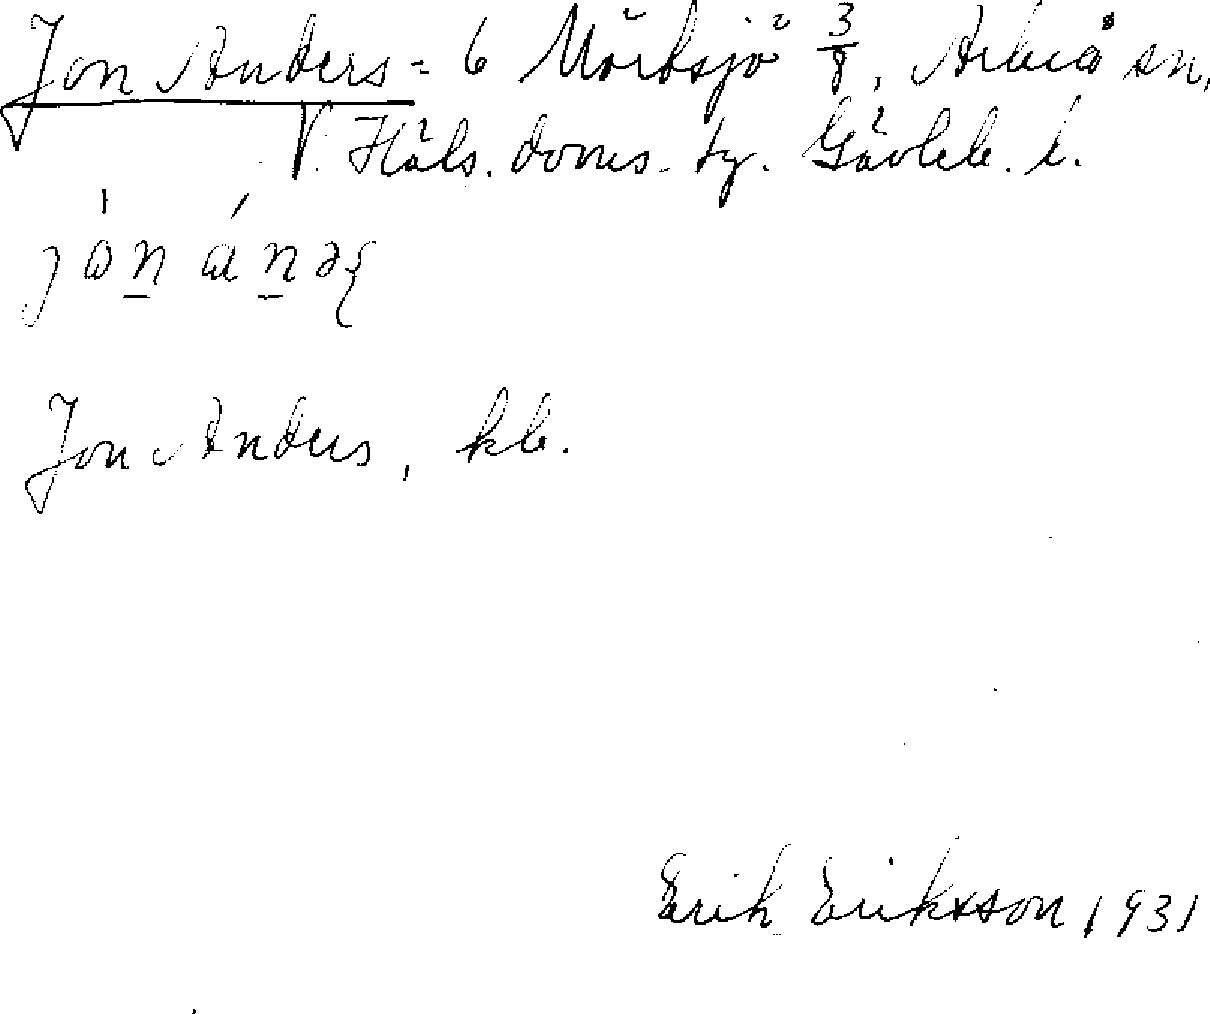 Jon Anders = 6 Mörtsjö 3/8, Arbrå sn,
V. Häls. doms. tg. Gävleb. l.
jòn ánəʂ
Jon Anders, kb.
Erik Eriksson 1931